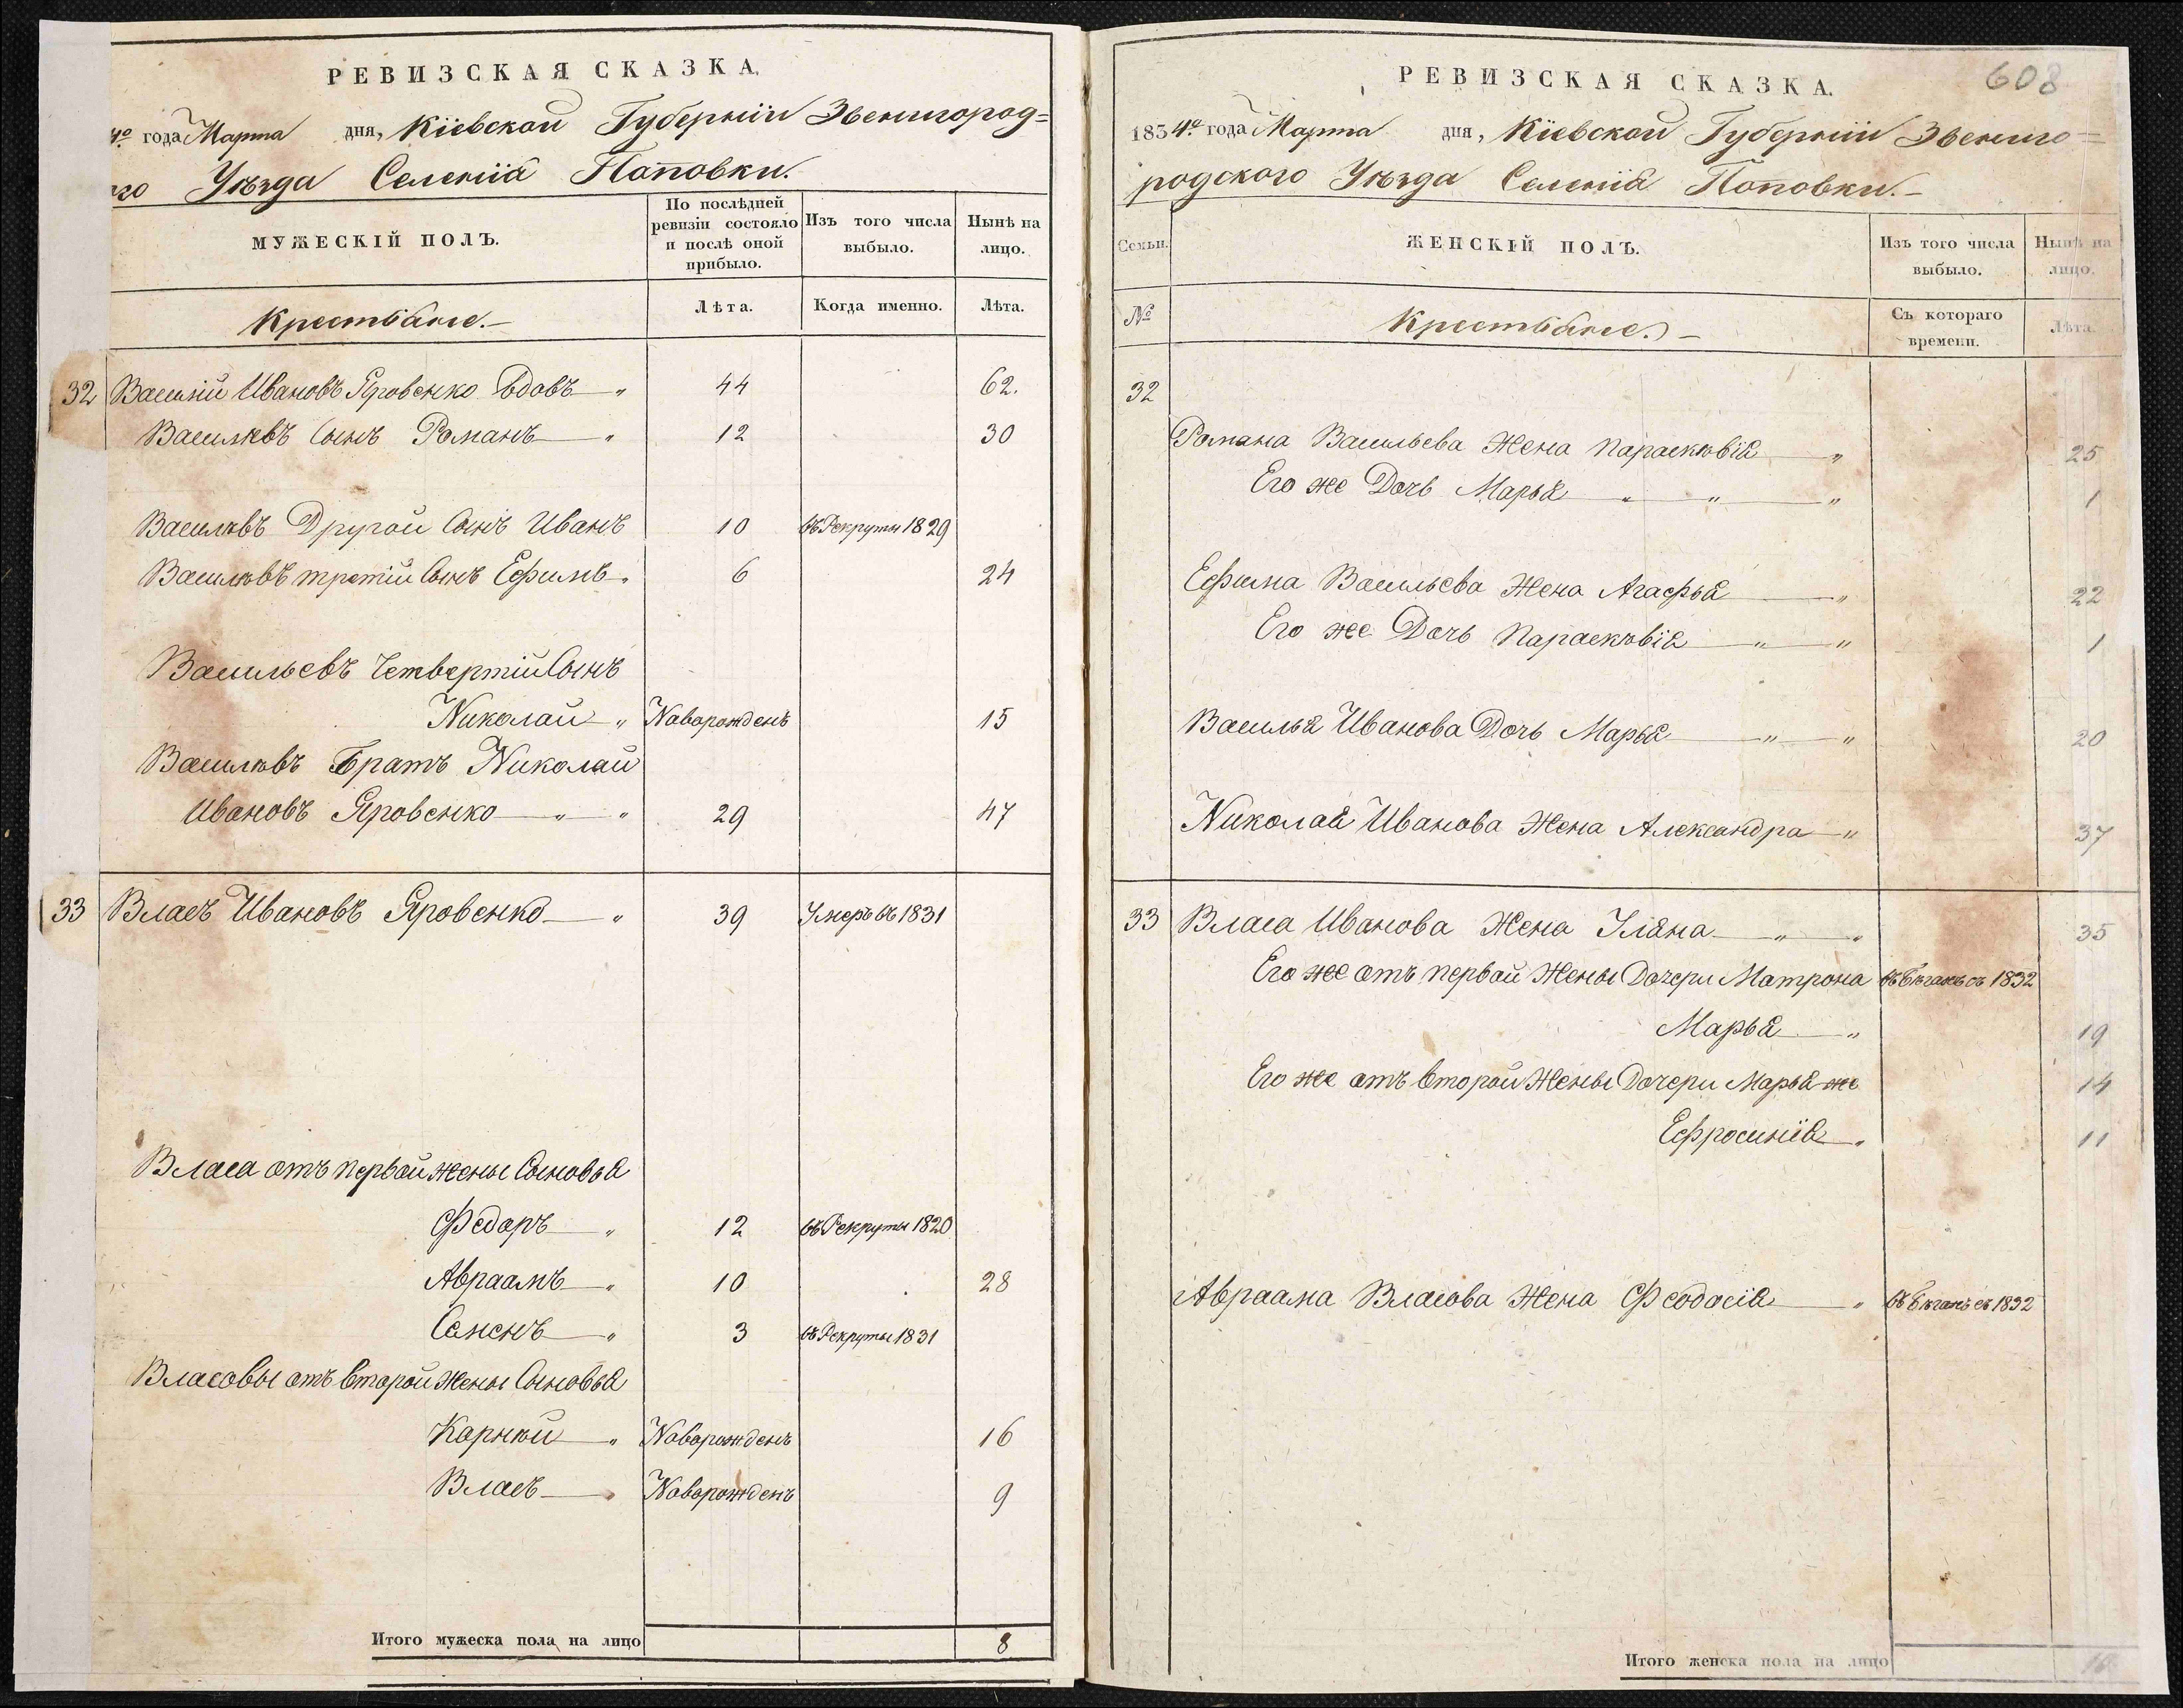 РЕВИЗСКАЯ СКАЗКА.
4го года Марта дня, Кіевской Губерніи Звенигород=
го Уѣзда Селенія Поповки.
МУЖЕСКІЙ ПОЛЪ.
По послѣдней ревизіи состояло и послѣ оной прибыло.
Изъ того числа выбыло.
Нынѣ на лицо.
Крестьяне.
Лѣта.
Когда именно.
Лѣта.
32 Василій Ивановъ Яровенко вдовъ 44 62.
Василѣвъ Сынъ Романъ 12 30
Василѣвъ Другой Сынъ Иванъ 10 въ Рекруты 1829
Василѣвъ третій Сынъ Ефимъ 6 24
Васильевъ Четвертій Сынъ
Николай Новорожденъ 15
Василѣвъ Братъ Николай
Ивановъ Яровенко 29 47
33 Власъ Ивановъ Яровенко 39 Умеръ въ 1831
Власа отъ первой жены Сыновья
Федоръ 12 въ Рекруты 1820
Авраамъ 10 28
Семенъ 3 въ Рекруты 1831
Власовы отъ второй жены Сыновья
Корнѣй Новорожденъ 16
Власъ Новорожденъ 9
Итого мужеска пола на лицо 8
608
РЕВИЗСКАЯ СКАЗКА.
1834го года Марта дня, Кіевской Губерніи Звениго=
родского Уѣзда Селенія Поповки.
Семьи.
ЖЕНСКІЙ ПОЛЪ.
Изъ того числа выбыло.
Нынѣ на лицо.
№
Крестьяне.
Съ котораго времени.
Лѣта.
32
Романа Васильева Жена Параскѣвія 25
Его же Дочь Марья 1
Ефима Васильева Жена Агафья 22
Его же Дочь Параскѣвія 1
Василья Иванова Дочь Марья 20
Николая Иванова Жена Александра 37
33 Власа Иванова Жена Уляна 35
Его же отъ первой Жены Дочери Матрона въ бѣгахъ съ 1832
Марья 19
Его же отъ второй Жены Дочери Марья же 14
Ефросинія 11
Авраама Власова Жена Феодосія въ бѣгахъ съ 1832
Итого женска пола на лицо 10